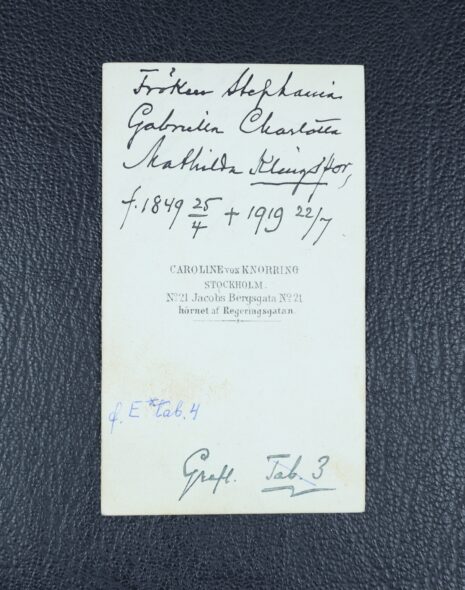 Fröken Stephania
Gabriella Charlotta
Mathilda Klingspor,
f. 1849 25/4 + 1919 22/7
CAROLINE VON KNORRING
STOCKHOLM.
No 21 Jacobs Bergsgata No 21
hörnet af Regeringsgatan.
E tab. 4
Grefl. Tab. 3